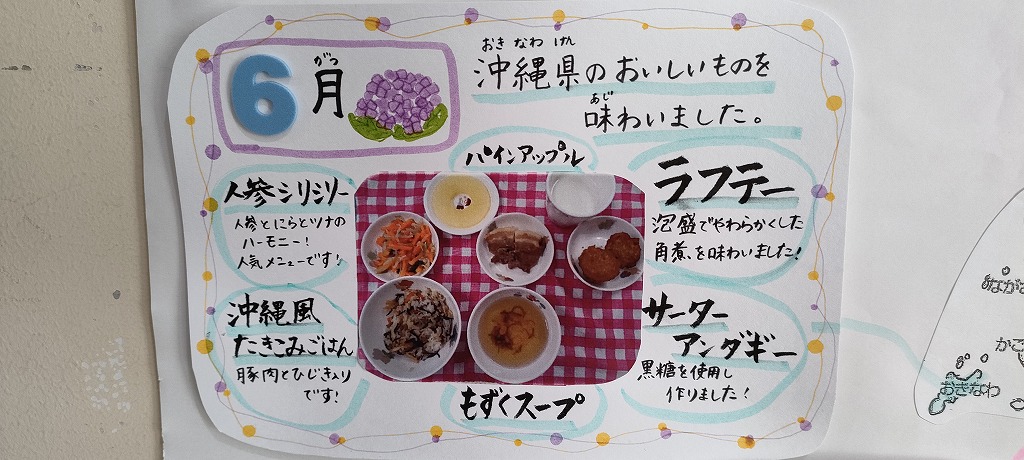 6月
がつ
おきなわけん
沖縄県のおいしいものを
あじ
味わいました。
パインアップル
人参シリシリー
人参とにらとツナの
ハーモニー!
人気メニューです!
ラフテー
泡盛でやわらかくした
角煮を味わいました!
沖縄風
たきこみごはん
豚肉とひじき入り
です!
サーター
アンダギー
黒糖を使用し
作りました!
もずくスープ
ながさ
かご
おきなわ